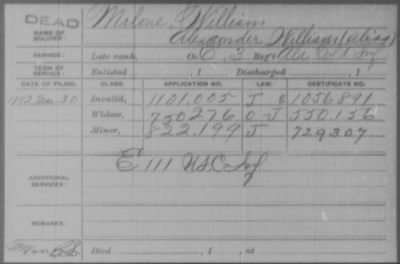 DEAD
NAME OF SOLDIER: Malone, William
Alexander, William (alias)
SERVICE: Late rank, Co. I, Reg't Ala Col'd Inf
TERM OF SERVICE: Enlisted , 1 Discharged , 1
DATE OF FILING. CLASS. APPLICATION NO. LAW. CERTIFICATE NO.
30 Invalid, 1101,005 J 1056891
Widow, 730276 O-J 550.156
Minor, 822,199 J 729307
ADDITIONAL SERVICES: E 111 U.S.C. Inf
REMARKS:
Died , 1 , at